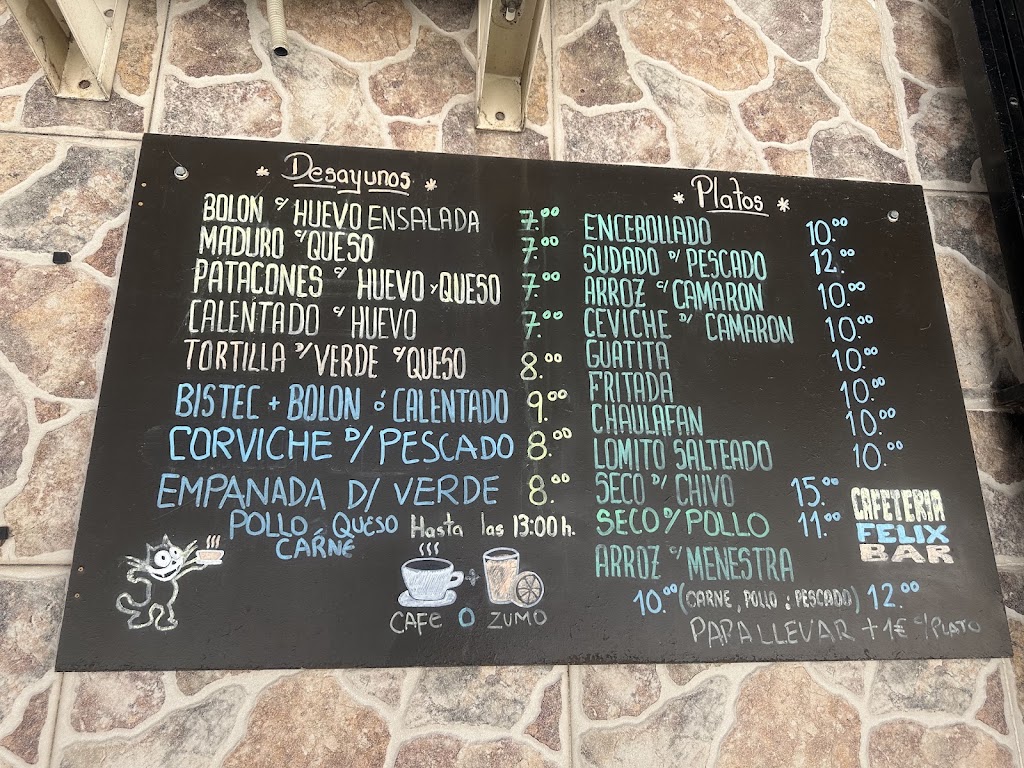 * Desayunos *
BOLON c/ HUEVO ENSALADA 7.00
MADURO c/ QUESO 7.00
PATACONES c/ HUEVO y QUESO 7.00
CALENTADO c/ HUEVO 7.00
TORTILLA D/ VERDE c/ QUESO 8.00
BISTEC + BOLON ó CALENTADO 9.00
CORVICHE D/ PESCADO 8.00
EMPANADA D/ VERDE 8.00
POLLO, QUESO Hasta las 13:00 h.
CARNE
CAFE O ZUMO
* Platos *
ENCEBOLLADO 10.00
SUDADO D/ PESCADO 12.00
ARROZ c/ CAMARON 10.00
CEVICHE D/ CAMARON 10.00
GUATITA 10.00
FRITADA 10.00
CHAULAFAN 10.00
LOMITO SALTEADO 10.00
SECO D/ CHIVO 15.00
SECO D/ POLLO 11.00
ARROZ c/ MENESTRA
10.00 (CARNE, POLLO ó PESCADO) 12.00
PAPA LLEVAR + 1€ c/ PLATO
CAFETERIA
FELIX
BAR